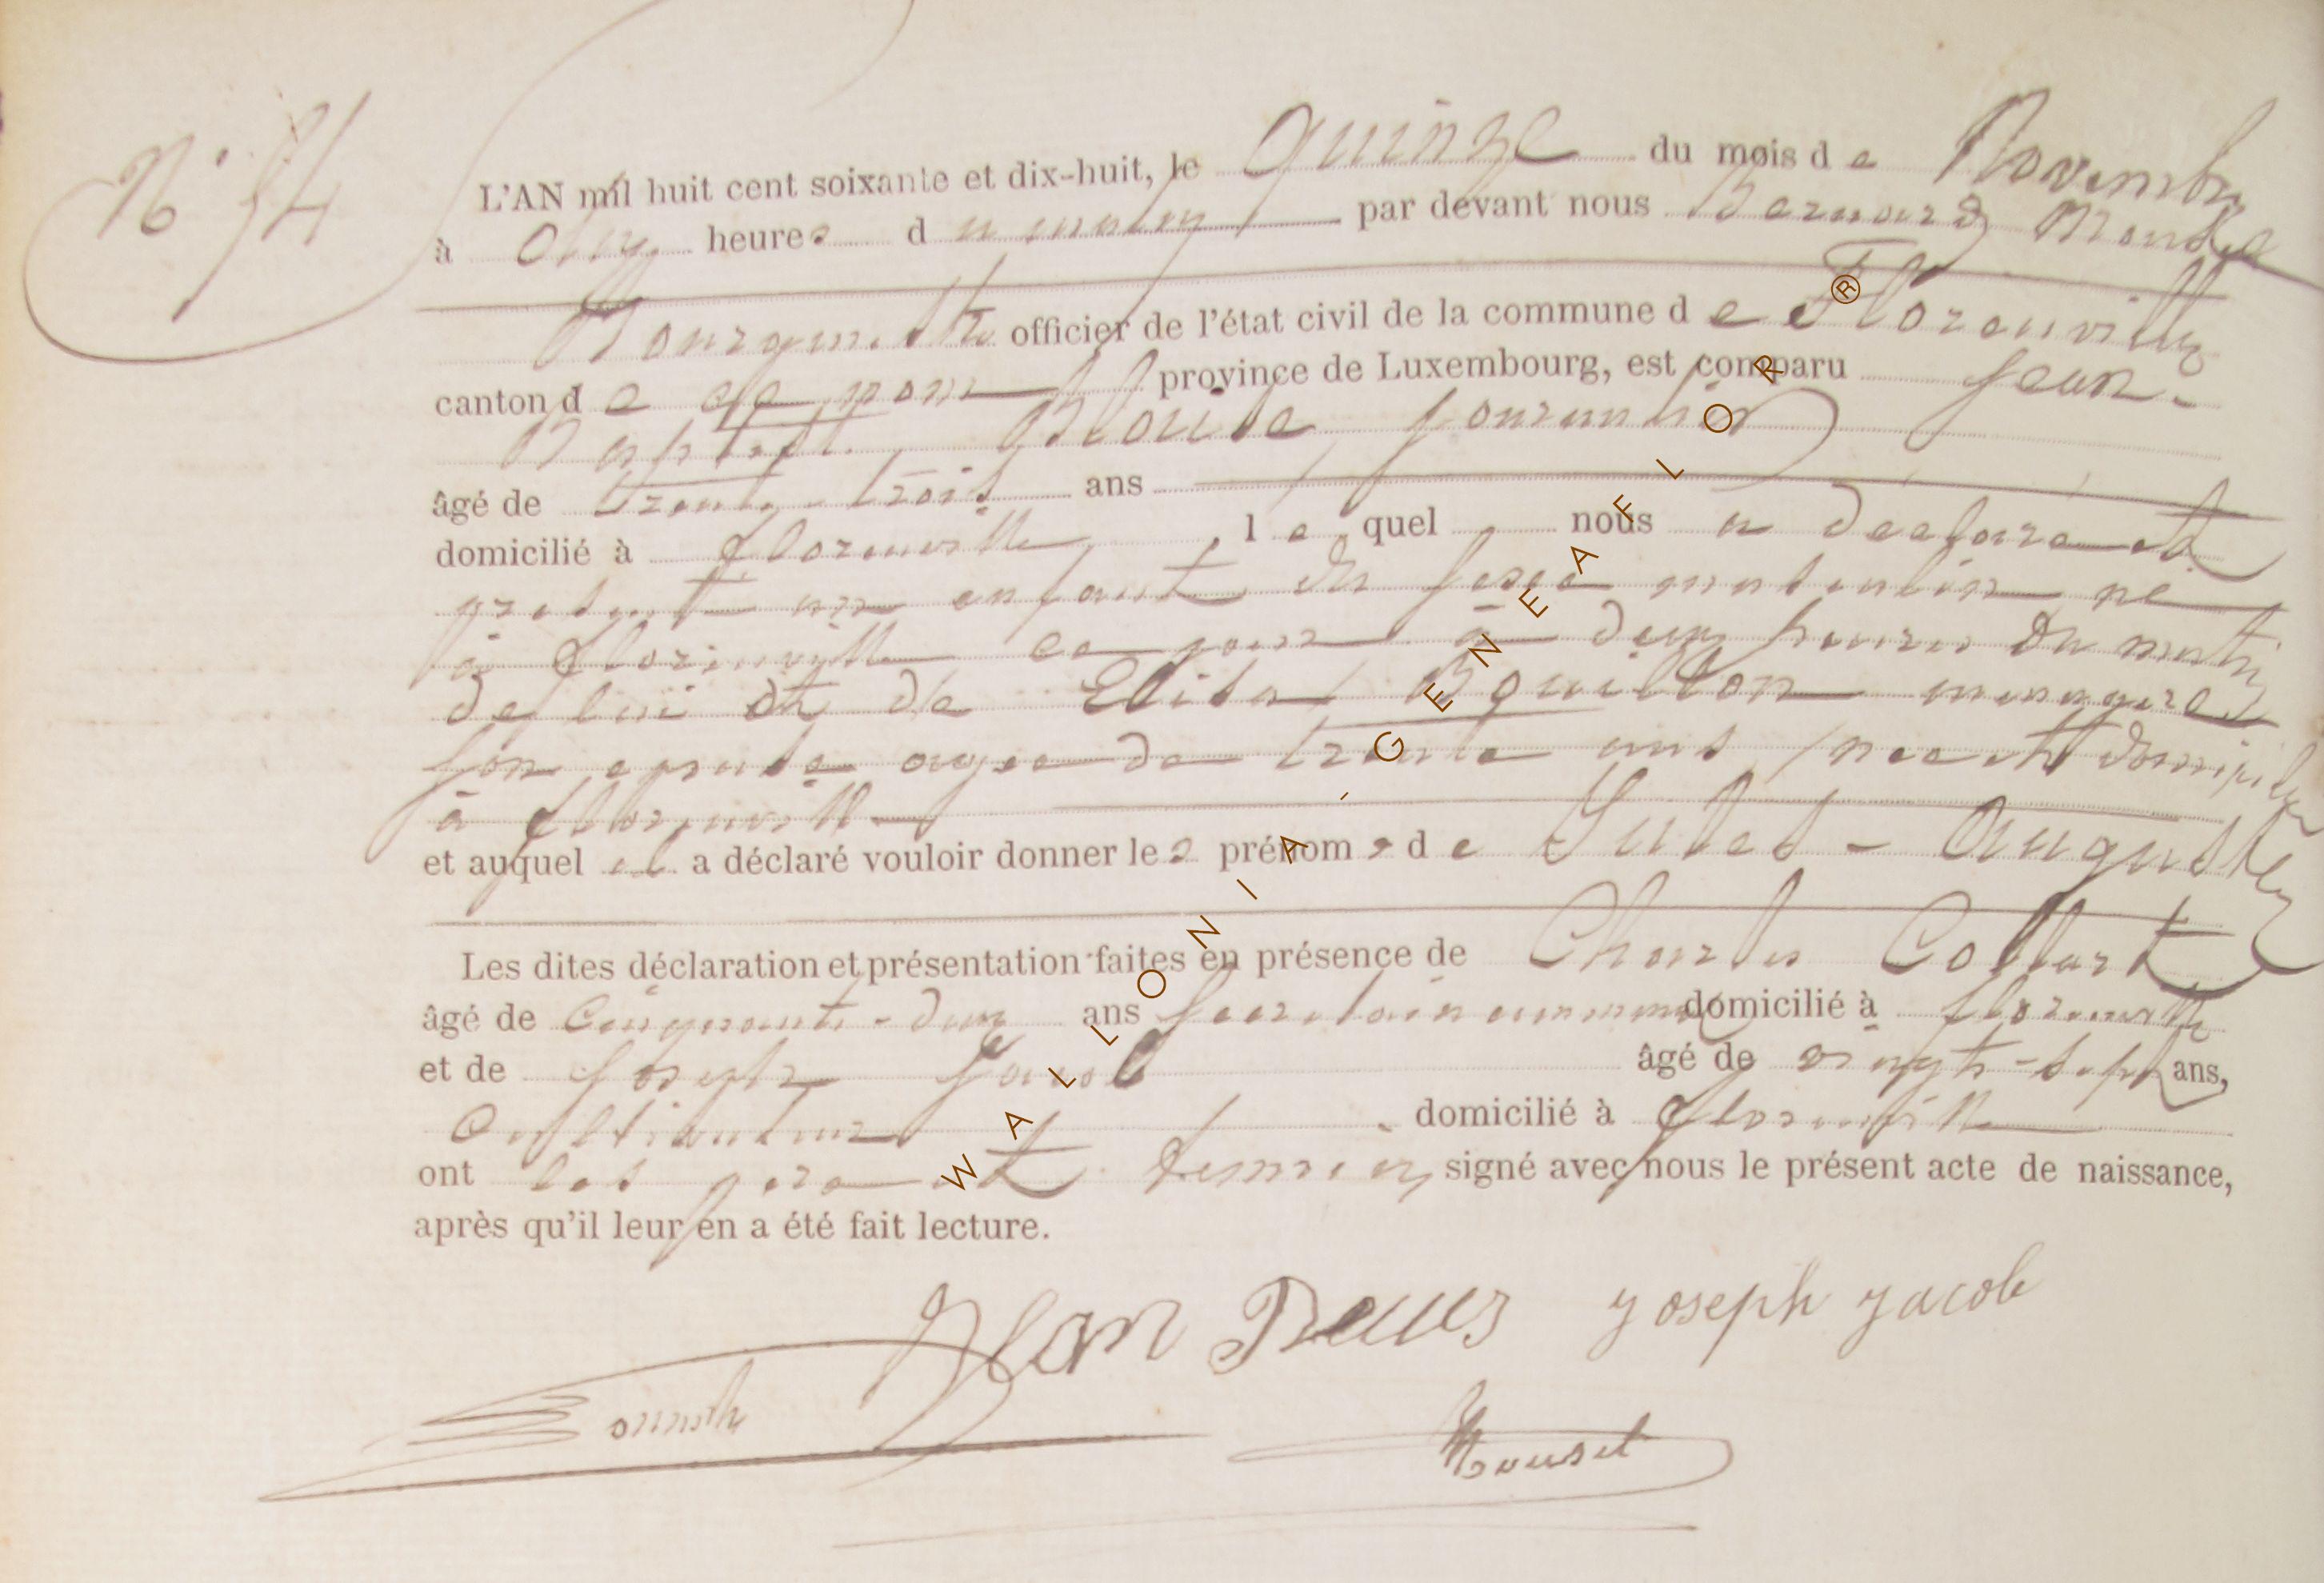 N° 74
L'AN mil huit cent soixante et dix-huit, le quinze du mois de Novembre
à heures du matin par devant nous Bernard
Bourgmestre officier de l'état civil de la commune de Florenville
canton de ce nom province de Luxembourg, est comparu Jean-
Baptiste journalier
âgé de trente-trois ans
domicilié à Florenville, lequel nous a déclaré et
présenté un enfant du sexe masculin né
à Florenville ce jour à deux heures du matin
de lui et de Elisa ménagère
son épouse agée de trente ans née et domiciliée
à Florenville
et auquel il a déclaré vouloir donner les prénoms de Jules-Auguste
Les dites déclaration et présentation faites en présence de Charles Collart
âgé de cinquante-deux ans domicilié à Florenville
et de Joseph Jacob âgé de vingt-sept ans,
cultivateur domicilié à Florenville
ont signé avec nous le présent acte de naissance,
après qu'il leur en a été fait lecture.
Jean Joseph Jacob
WALLONIA-GENEAFLOR®